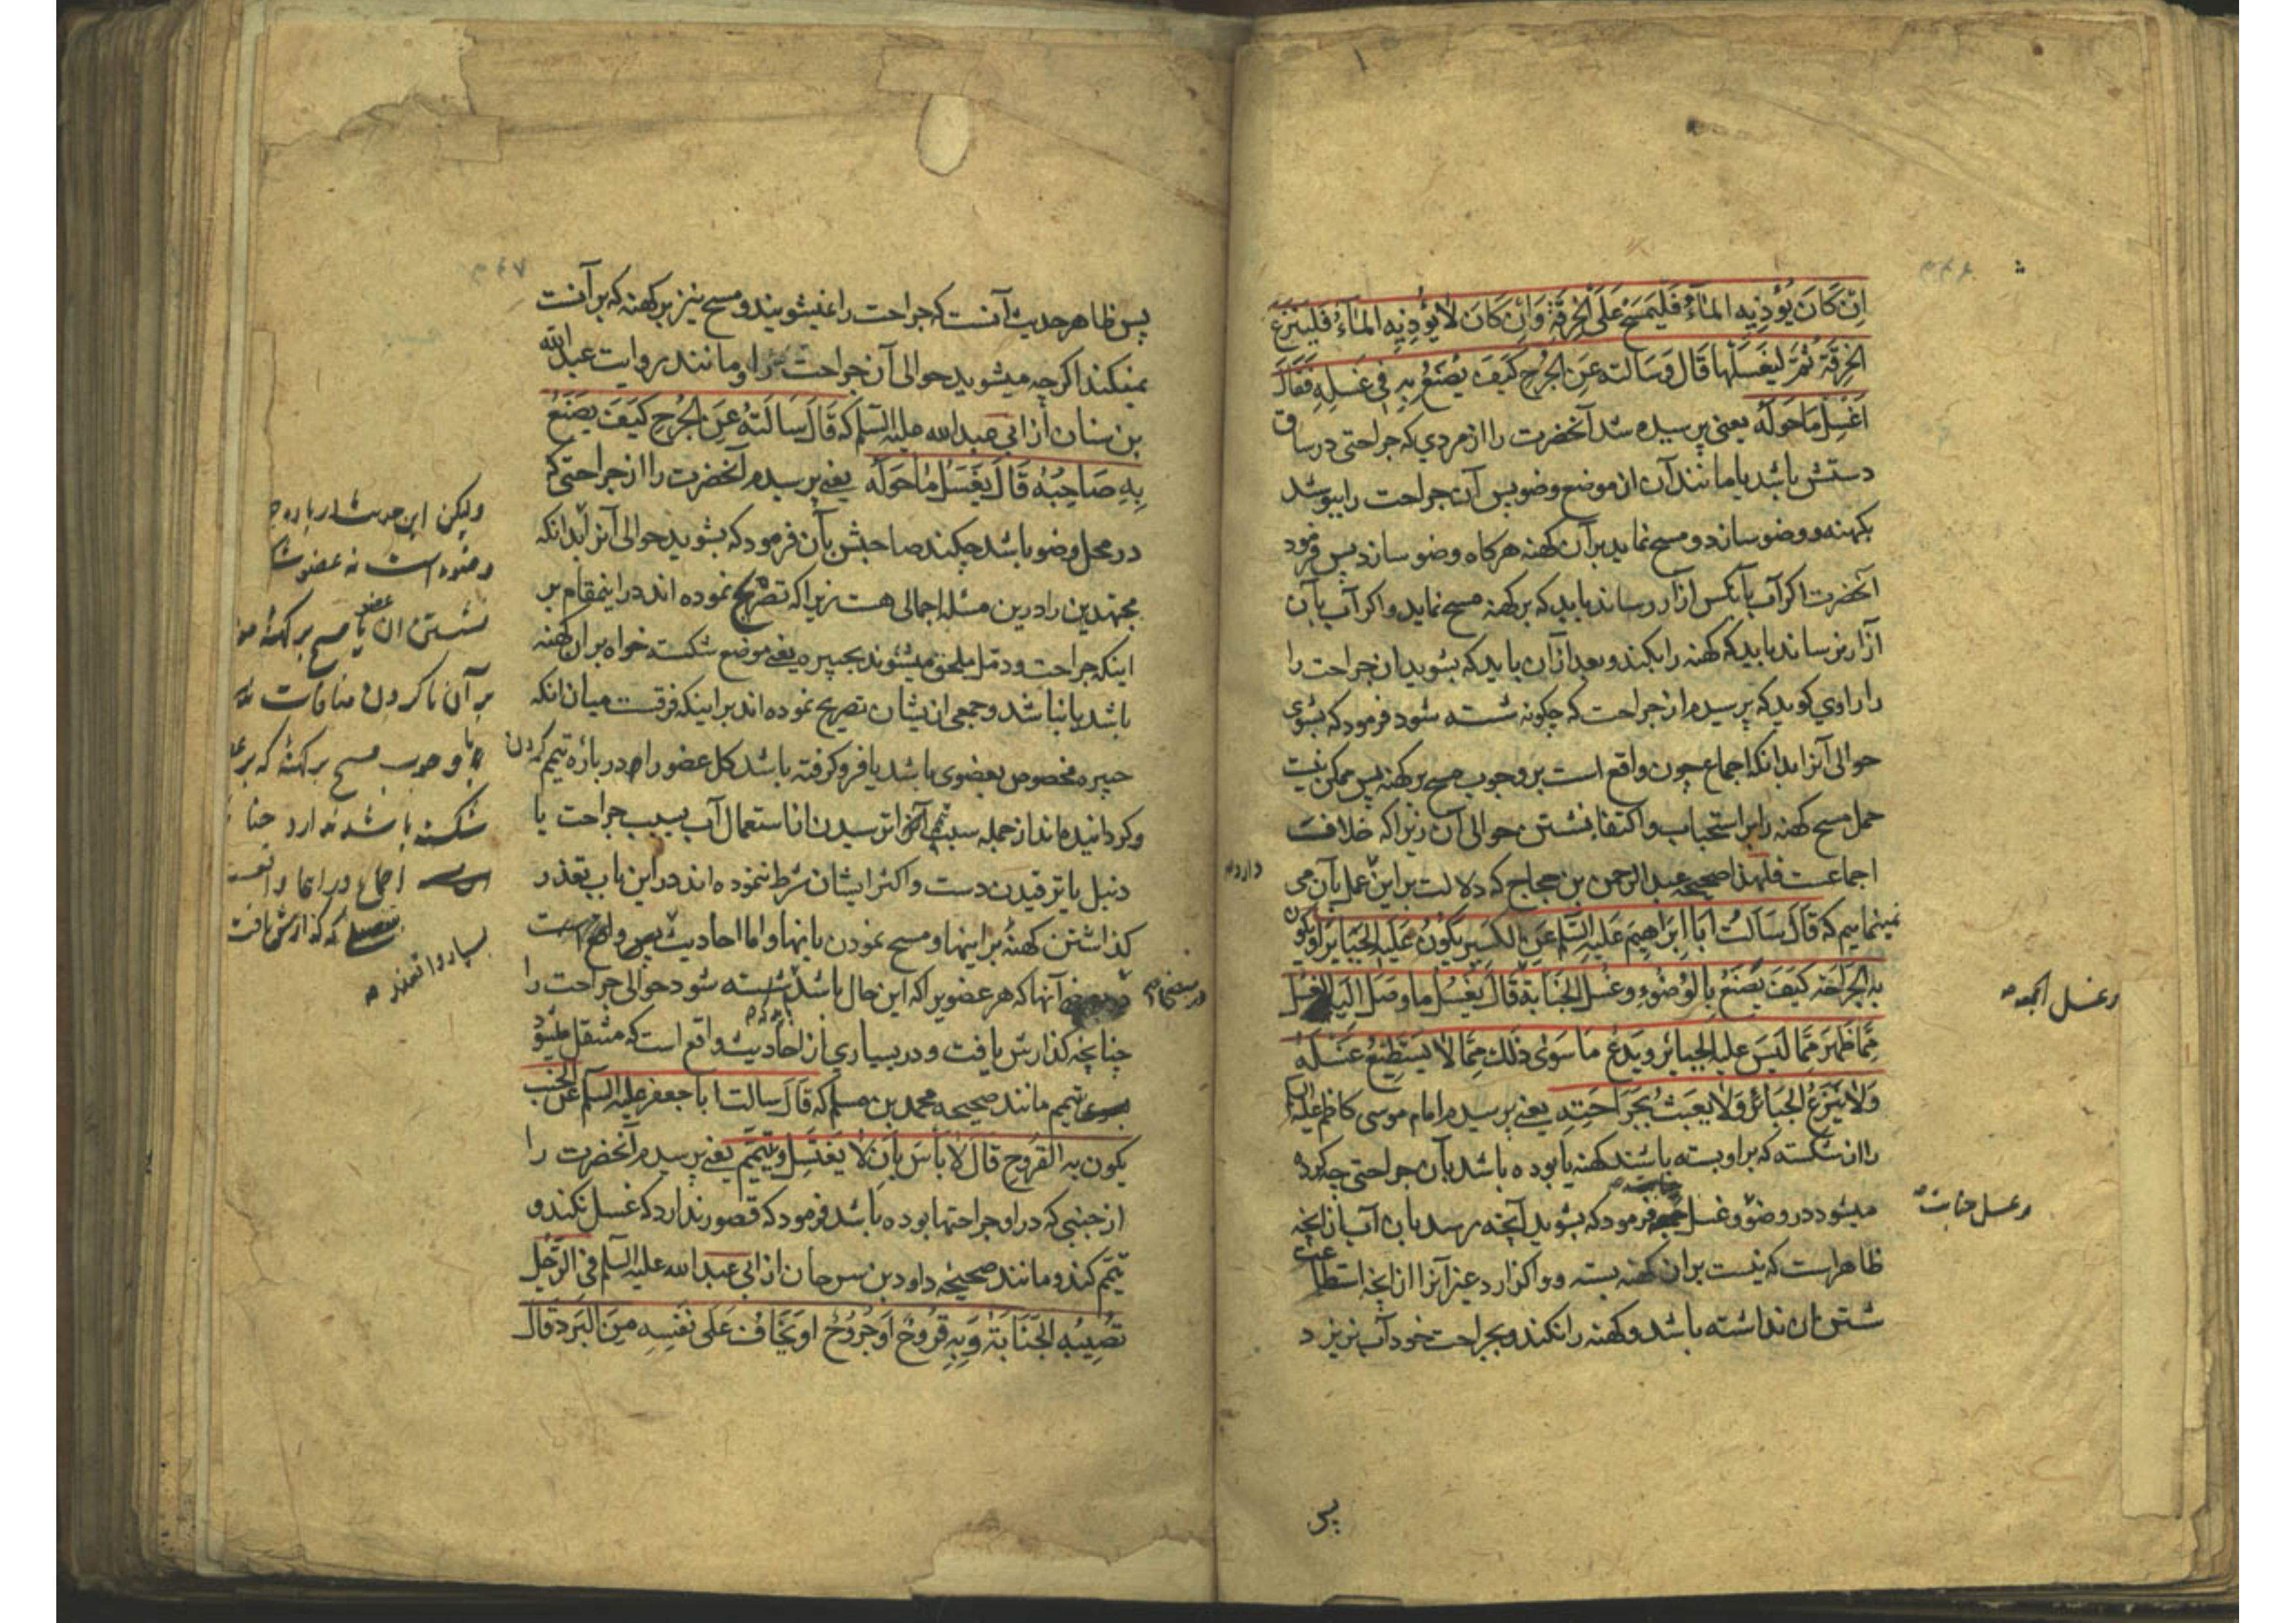 اِنْ كَانَ يُؤْذِيهِ المَاءُ فَليَمسَحْ عَلَى الخِرقَةِ وَاِنْ كَانَ لَا يُؤْذِيهِ المَاءُ فَليَنزِعْ
الخِرقَةَ ثُمَّ ليَغسِلْهَا قَالَ وَسَالته عَنِ الجُرحِ كَيفَ يُصْنَعُ بِهِ فِي غَسلِهِ فَقَالَ
اغْسِل مَا حَولَهُ یعنی پرسیده شد آنحضرت را از مردی که جراحتی در ساق
دستش باشد یا مانند آن از موضع وضو پس آن جراحت را بپوشد
بکهنه و وضو سازد و مسح نماید بر آن کهنه هرکاه وضو سازد پس فرمود
آنحضرت اکر آب بآنکس آزار رساند باید که بر کهنه مسح نماید و اکر آب بآن
آزار نرساند باید که کهنه را بکند و بعد از آن باید که بشوید ان جراحت را
را راوی کوید که پرسیدم از جراحت که چکونه شسته شود فرمود که بشوی
حوالی آنرا بدانکه اجماع چون واقع است بر وجوب مسح بر کهنه پس ممکن نیست
حمل مسح کهنه را بر استحباب و اکتفا بشستن حوالی آن زیرا که خلاف
اجماعست فلهذا صحیحه عبد الرحمن بن حجاج که دلالت بر این عمل بآن می
دارد
نمینمایم که قَالَ سَالتُ اَبَا اِبرَاهِيمَ عَلَيهِ السَّلَم عَنِ الكَسِيرِ يَكُونُ عَلَيهِ الجَبَايِرُ اَو يَكُونُ
بِهِ الجَرَاحَة كَيفَ يَصْنَعُ بِالوُضُوءِ وَغُسلِ الجَنَابَةِ قَالَ يَغْسِلُ مَا وَصَلَ اِلَيهِ الغسل
وغسل الجمعه
مِمَّا ظَهَرَ مِمَّا لَيسَ عليهِ الجبائر وَيَدَعُ مَا سَوَى ذَلِكَ مِمَّا لا يَستَطِيعُ غَسلَهُ
وَلَا يَنْزِعُ الجَبَائرَ وَلَا يَعبَث بِجَرَاحَتِهِ یعنی پرسیدم امام موسی کاظم علیه السلام
را از شکسته که بر او بسته باشند کهنه یا بوده باشد بآن جراحتی چه کرده
میشود در وضو و غسل فرمود که بشوید آنچه رسد بان آب از انچه
وغسل جنابت
ظاهر است که نیست بران کهنه بسته و واکذارد غیر آنرا از انچه استطاعت
شستن ان نداشته باشد و کهنه را نکند و بجراحت خود آب نریزد
پس
پس ظاهر حدیث آنست که جراحت را نمیشویند و مسح نیز بر کهنه که بر آنست
نمیکند اکرچه میشوید حوالی آن جراحت را و مانند روایت عبد الله
بن سنان از ابی عبد الله علیه السلم که قَالَ سَالتُهُ عَنِ الجُرحِ كَيفَ يَصْنَعُ
بِهِ صَاحِبُهُ قَالَ يَغسِلُ مَا حَولَهُ یعنی پرسیدم آنحضرت را از جراحتی که
در محل وضو باشد چکند صاحبش بآن فرمود که بشوید حوالی آنرا بدانکه
مجتهدین را درین مسئله اجمالی هست زیرا که تصریح نموده اند در اینمقام بر
اینکه جراحت و دمل ملحق میشوند بجبیره یعنی موضع شکسته خواه بر ان کهنه
باشد یا نباشد و جمعی از یشان تصریح نموده اند بر اینکه فرقست میان انکه
جبیره مخصوص بعضوی باشد یا فرو کرفته باشد کل عضو را و در باره تیمم کردن
و کردانیده اند از جمله سبب ترسیدن از استعمال آب بسبب جراحت یا
دنبل یا ترقیدن دست و اکثر ایشان شرط ننموده اند در این باب تعذر
کذاشتن کهنه بر اینها و مسح نمودن بانها و اما احادیث پس واقع است
آنها که هر عضویرا که این حال باشد شسته شود حوالی جراحت را
چنانچه کذارش یافت و در بسیاری از احادیث واقع است که منتقل میشود
تیمم مانند صحیحه محمد بن مسلم که قَالَ سالت ابا جعفر علیه السلم عَن الجُنُب
يكون بِهِ القُرُوح قَالَ لَا بَأسَ بِاَنْ لَا يَغتَسِل وَيَتَيَمَّم یعنی پرسیدم آنحضرت را
از جنبی که در او جراحتها بوده باشد فرمود که قصور ندارد که غسل نکند و
تیمم کند و مانند صحیحه داود بن سرحان از ابی عبد الله علیه السلم فِي الرَّجُلِ
تُصِيبُه الجَنَابَةُ وَبِهِ قُرُوحٌ اَو جُرُوحٌ اَو يَخَافُ عَلَى نَفْسِهِ مِنَ البَردِ قَالَ
ولیکن این حدیث
وضوء است نه عضو
شستن ان عضو یا مسح بر کهنه
بر آن نا کردن منافات
با وجوب مسح بر کهنه که بر
شکسته باشد ندارد
اجماع
که کذارش یافت